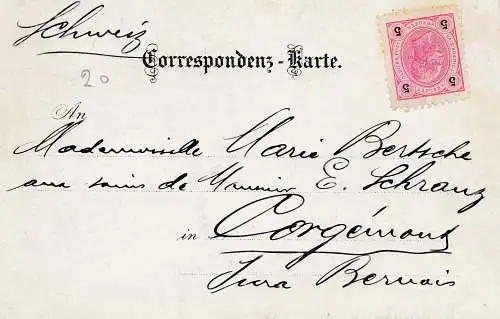 Schweiz
Correspondenz-Karte.
5 5
5 5
20
An
Mademoiselle Marie Bertsche
aux soins de Monsieur E. Schranz
in Corgémont
Jura Bernois